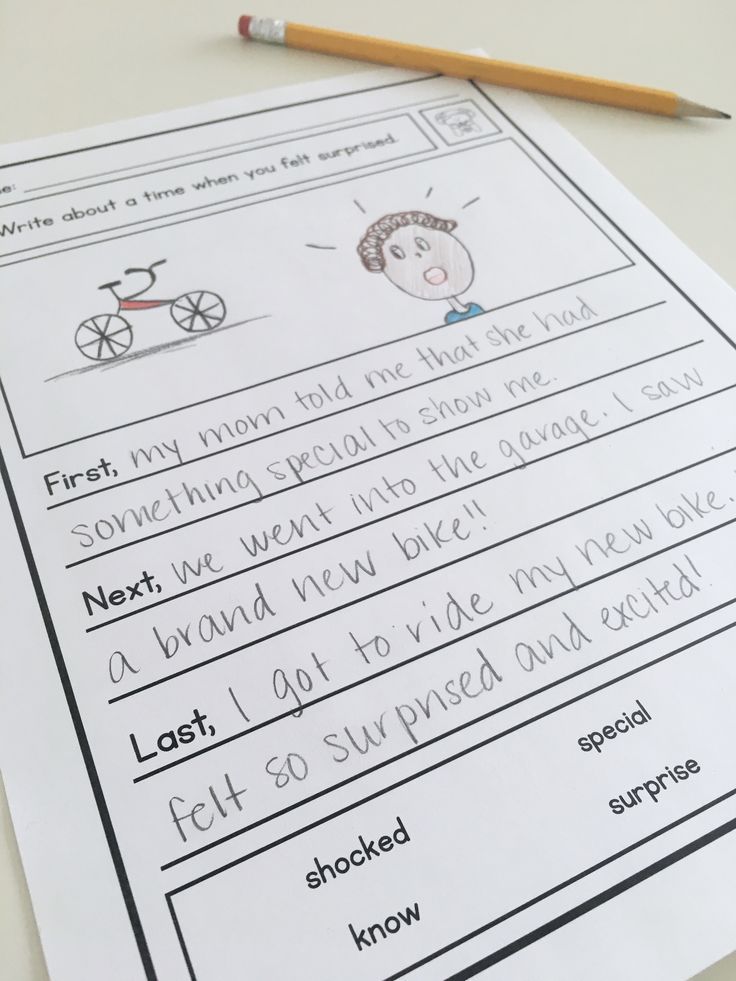 e:
Write about a time when you felt surprised.
First, my mom told me that she had
something special to show me.
Next, we went into the garage. I saw
a brand new bike!!
Last, I got to ride my new bike.
felt so surprised and excited!
special
shocked
surprise
know